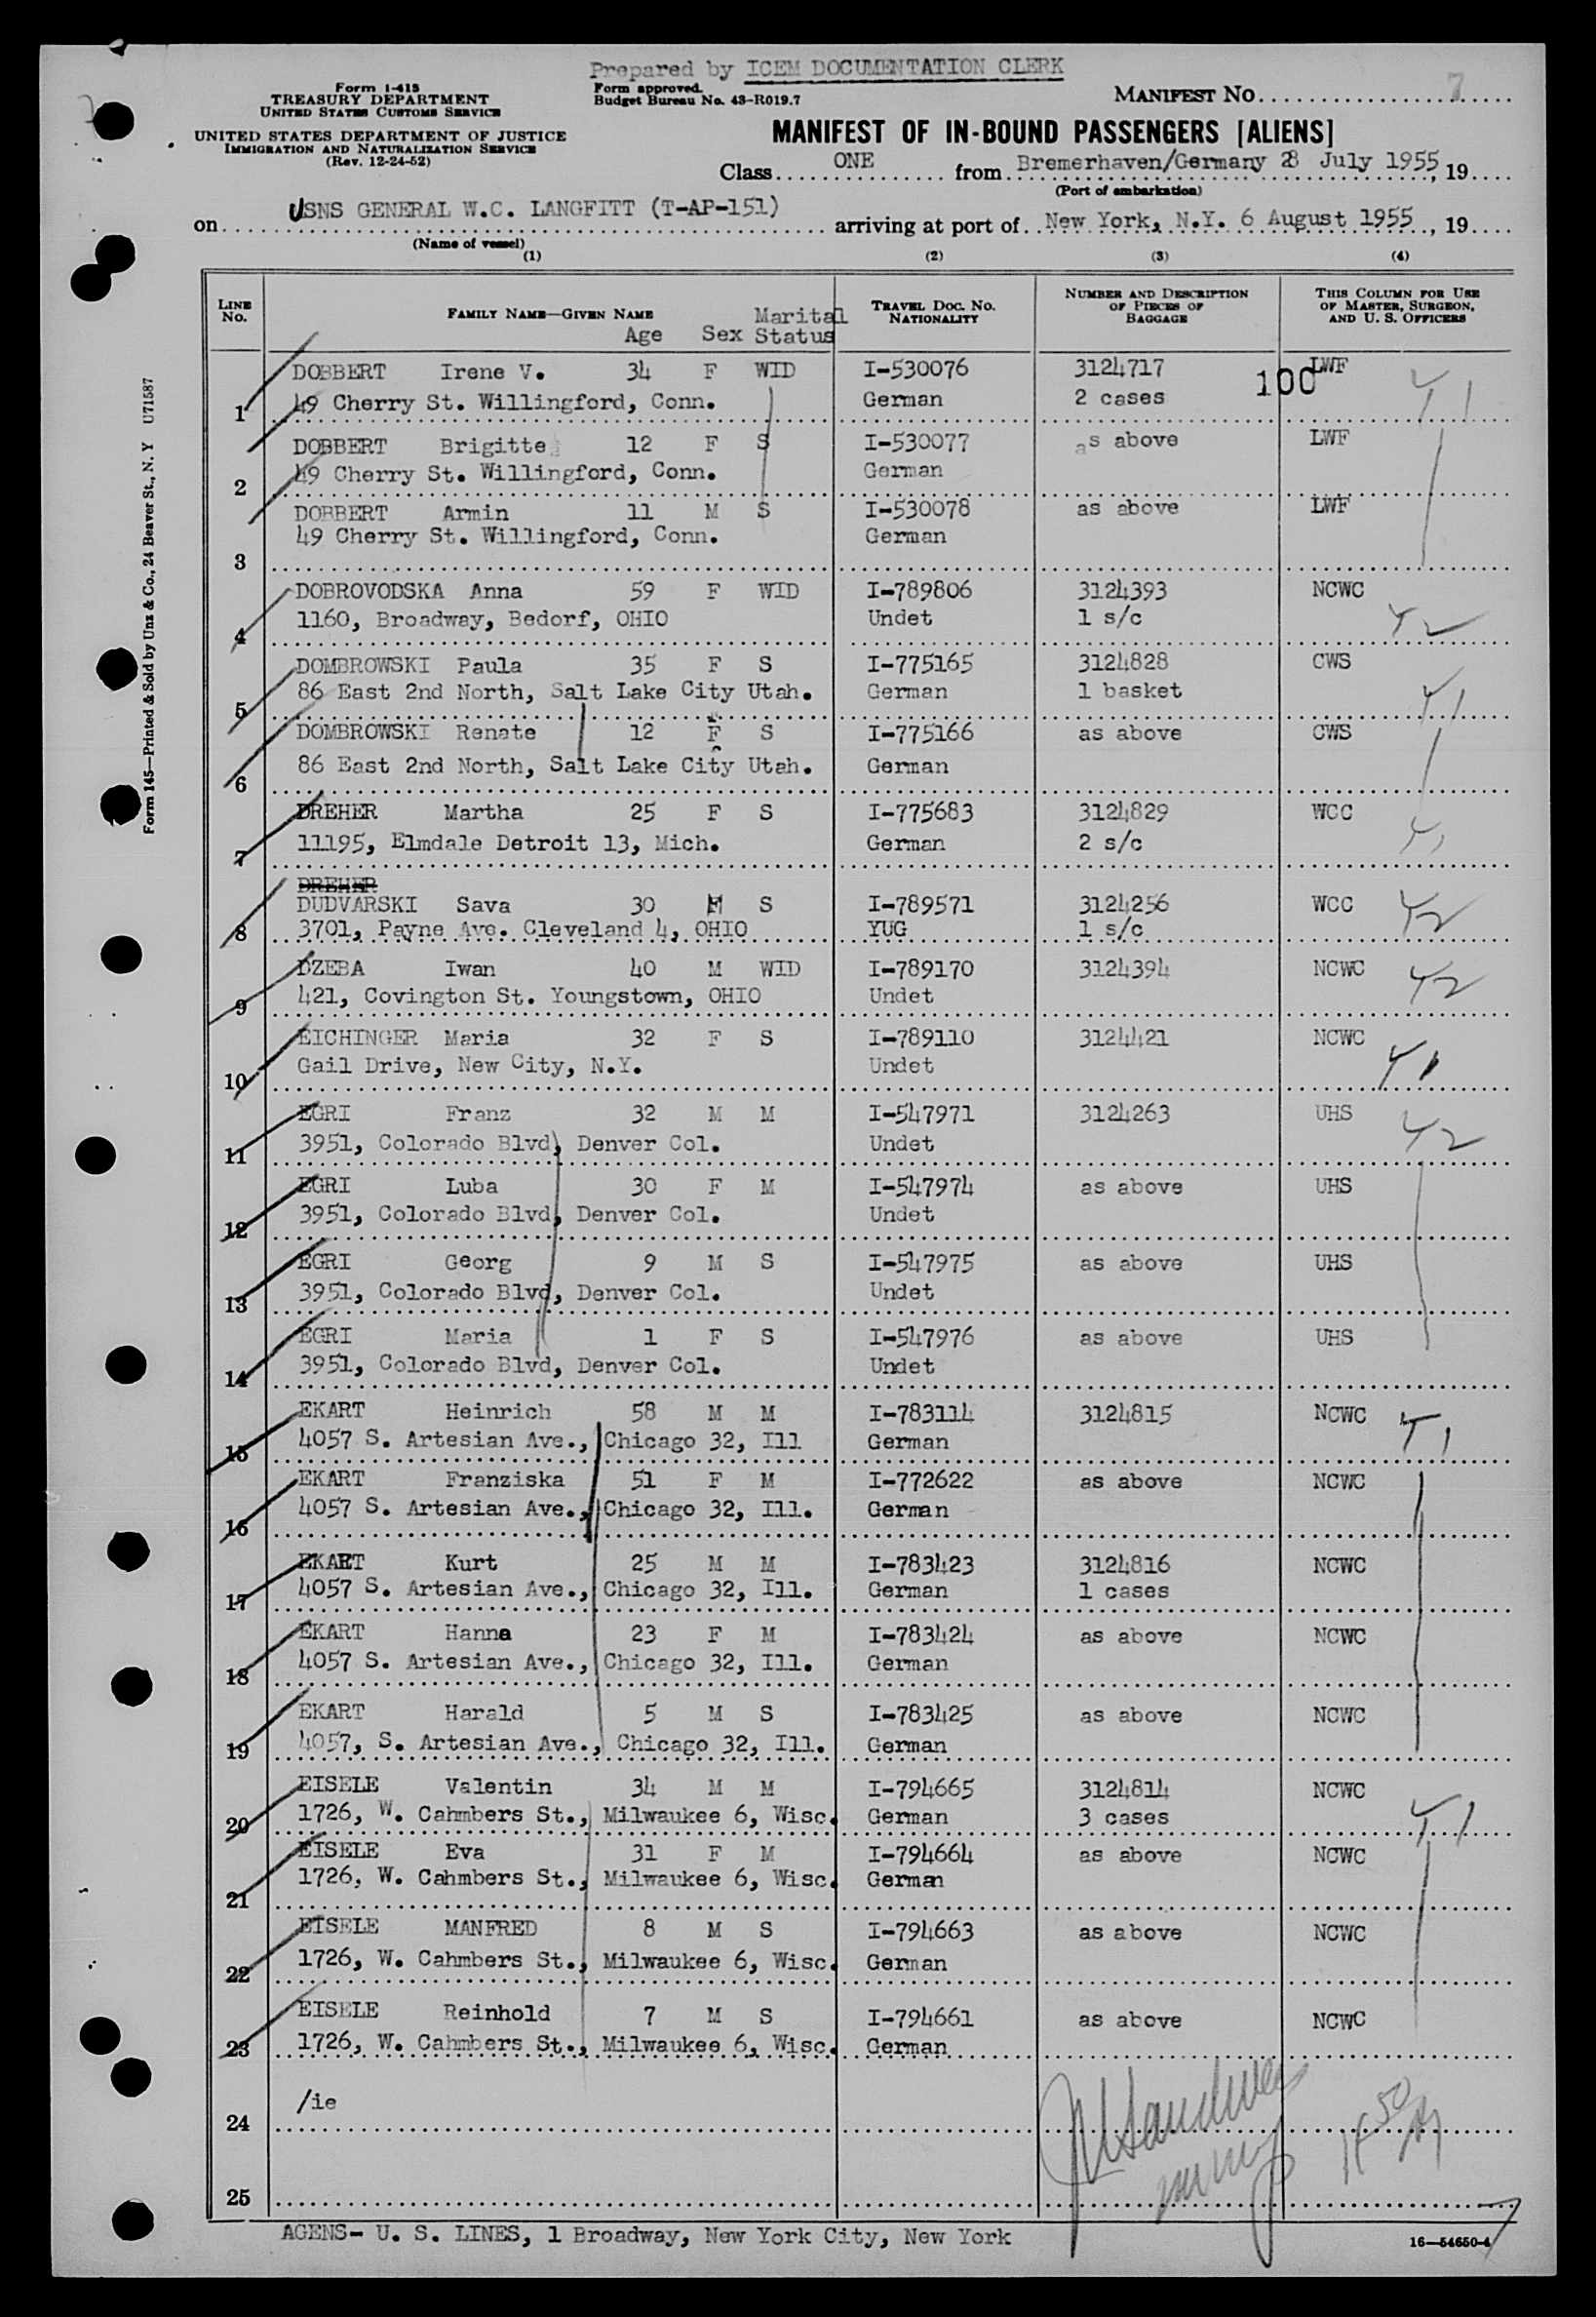 Prepared by ICEM DOCUMENTATION CLERK
Form I-415
TREASURY DEPARTMENT
UNITED STATES CUSTOMS SERVICE
UNITED STATES DEPARTMENT OF JUSTICE
IMMIGRATION AND NATURALIZATION SERVICE
(Rev. 12-24-52)
Form approved.
Budget Bureau No. 43-R019.7
MANIFEST NO. 7
MANIFEST OF IN-BOUND PASSENGERS [ALIENS]
Class ONE from Bremerhaven/Germany 28 July 1955, 19
(Port of embarkation)
on USNS GENERAL W.C. LANGFITT (T-AP-151) arriving at port of New York, N.Y. 6 August 1955, 19
(Name of vessel)
(1) (2) (3) (4)
LINE NO. FAMILY NAME—GIVEN NAME Age Sex Marital Status TRAVEL DOC. NO. NATIONALITY NUMBER AND DESCRIPTION OF PIECES OF BAGGAGE THIS COLUMN FOR USE OF MASTER, SURGEON, AND U. S. OFFICERS
DOBBERT Irene V. 34 F WID I-530076 3124717 LWF
1 49 Cherry St. Willingford, Conn. German 2 cases 100
DOBBERT Brigitte 12 F S I-530077 as above LWF
2 49 Cherry St. Willingford, Conn. German
DOBBERT Armin 11 M S I-530078 as above LWF
3 49 Cherry St. Willingford, Conn. German
DOBROVODSKA Anna 59 F WID I-789806 3124393 NCWC
4 1160, Broadway, Bedorf, OHIO Undet 1 s/c
DOMBROWSKI Paula 35 F S I-775165 3124828 CWS
5 86 East 2nd North, Salt Lake City Utah. German 1 basket
DOMBROWSKI Renate 12 F S I-775166 as above CWS
6 86 East 2nd North, Salt Lake City Utah. German
DREHER Martha 25 F S I-775683 3124829 WCC
7 11195, Elmdale Detroit 13, Mich. German 2 s/c
DREHER
DUDVARSKI Sava 30 M S I-789571 3124256 WCC
8 3701, Payne Ave. Cleveland 4, OHIO YUG 1 s/c
DZEBA Iwan 40 M WID I-789170 3124394 NCWC
9 421, Covington St. Youngstown, OHIO Undet
EICHINGER Maria 32 F S I-789110 3124421 NCWC
10 Gail Drive, New City, N.Y. Undet
EGRI Franz 32 M M I-547971 3124263 UHS
11 3951, Colorado Blvd, Denver Col. Undet
EGRI Luba 30 F M I-547974 as above UHS
12 3951, Colorado Blvd, Denver Col. Undet
EGRI Georg 9 M S I-547975 as above UHS
13 3951, Colorado Blvd, Denver Col. Undet
EGRI Maria 1 F S I-547976 as above UHS
14 3951, Colorado Blvd, Denver Col. Undet
EKART Heinrich 58 M M I-783114 3124815 NCWC
15 4057 S. Artesian Ave., Chicago 32, Ill German
EKART Franziska 51 F M I-772622 as above NCWC
16 4057 S. Artesian Ave., Chicago 32, Ill. German
EKART Kurt 25 M M I-783423 3124816 NCWC
17 4057 S. Artesian Ave., Chicago 32, Ill. German 1 cases
EKART Hanna 23 F M I-783424 as above NCWC
18 4057 S. Artesian Ave., Chicago 32, Ill. German
EKART Harald 5 M S I-783425 as above NCWC
19 4057, S. Artesian Ave., Chicago 32, Ill. German
EISELE Valentin 34 M M I-794665 3124814 NCWC
20 1726, W. Cahmbers St., Milwaukee 6, Wisc. German 3 cases
EISELE Eva 31 F M I-794664 as above NCWC
21 1726, W. Cahmbers St., Milwaukee 6, Wisc. German
EISELE MANFRED 8 M S I-794663 as above NCWC
22 1726, W. Cahmbers St., Milwaukee 6, Wisc. German
EISELE Reinhold 7 M S I-794661 as above NCWC
23 1726, W. Cahmbers St., Milwaukee 6, Wisc. German
/ie
24
25
AGENS- U. S. LINES, 1 Broadway, New York City, New York
16—54650-4
Form 145—Printed & Sold by Unz & Co., 24 Beaver St., N. Y U71587